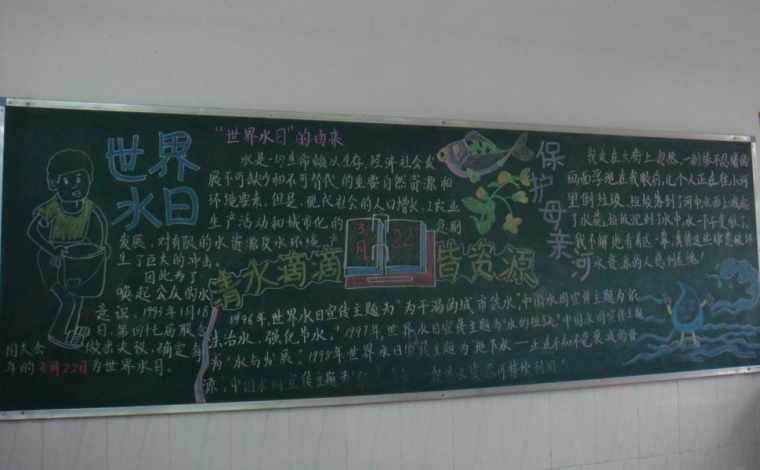 世界
水日
"世界水日"的由来
水是一切生命赖以生存,经济社会发
展不可缺少和不可替代的重要自然资源和
环境要素。但是,现代社会的人口增长、工农业
生产活动和城市化的
发展,对有限的水资源及水环境产
生了巨大的冲击。
因此为了
唤起公众的水
意识,1993年1月18
日,第四十七届联合
国大会 做出决议,确定每
年的3月22日为世界水日。
3月 22
清水滴滴 皆资源
1996年,世界水日宣传主题为"为干渴的城市供水",中国水周宣传主题为"依
法治水,强化节水。"1997年,世界水日宣传主题为"水的短缺",中国水周宣传主题
为"水与发展。"1998年世界水日宣传主题为"地下水——正在不知不觉衰减的资
源,中国水周宣传主题为
保护母亲河
我走在大街上,忽然,一副惨不忍睹的
画面浮现在我眼前,几个人正在往小河
里倒垃圾,垃圾落到了河中,水面上溅起
了水花,垃圾沉到了水中,水一下子变脏了,
我不解
水资源的人感到